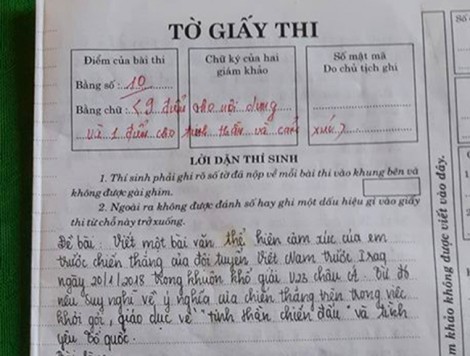 TỜ GIẤY THI
Điểm của bài thi
Bằng số: 10
Bằng chữ: (9 điểm cho nội dung
và 1 điểm cho tinh thần và cảm xúc)
Chữ ký của hai
giám khảo
Số mật mã
Do chủ tịch ghi
LỜI DẶN THÍ SINH
1. Thí sinh phải ghi rõ số tờ đã nộp về mỗi bài thi vào khung bên và
không được gài ghim.
2. Ngoài ra không được đánh số hay ghi một dấu hiệu gì vào giấy
thi từ chỗ này trở xuống.
Đề bài: Viết một bài văn thể hiện cảm xúc của em
trước chiến thắng của đội tuyển Việt Nam trước Iraq
ngày 20/1/2018 trong khuôn khổ giải U23 châu Á. Từ đó
nêu suy nghĩ về ý nghĩa của chiến thắng trên trong việc
khơi gợi, giáo dục về "tinh thần chiến đấu" và tình
yêu Tổ quốc.
khảo không được viết vào đây.